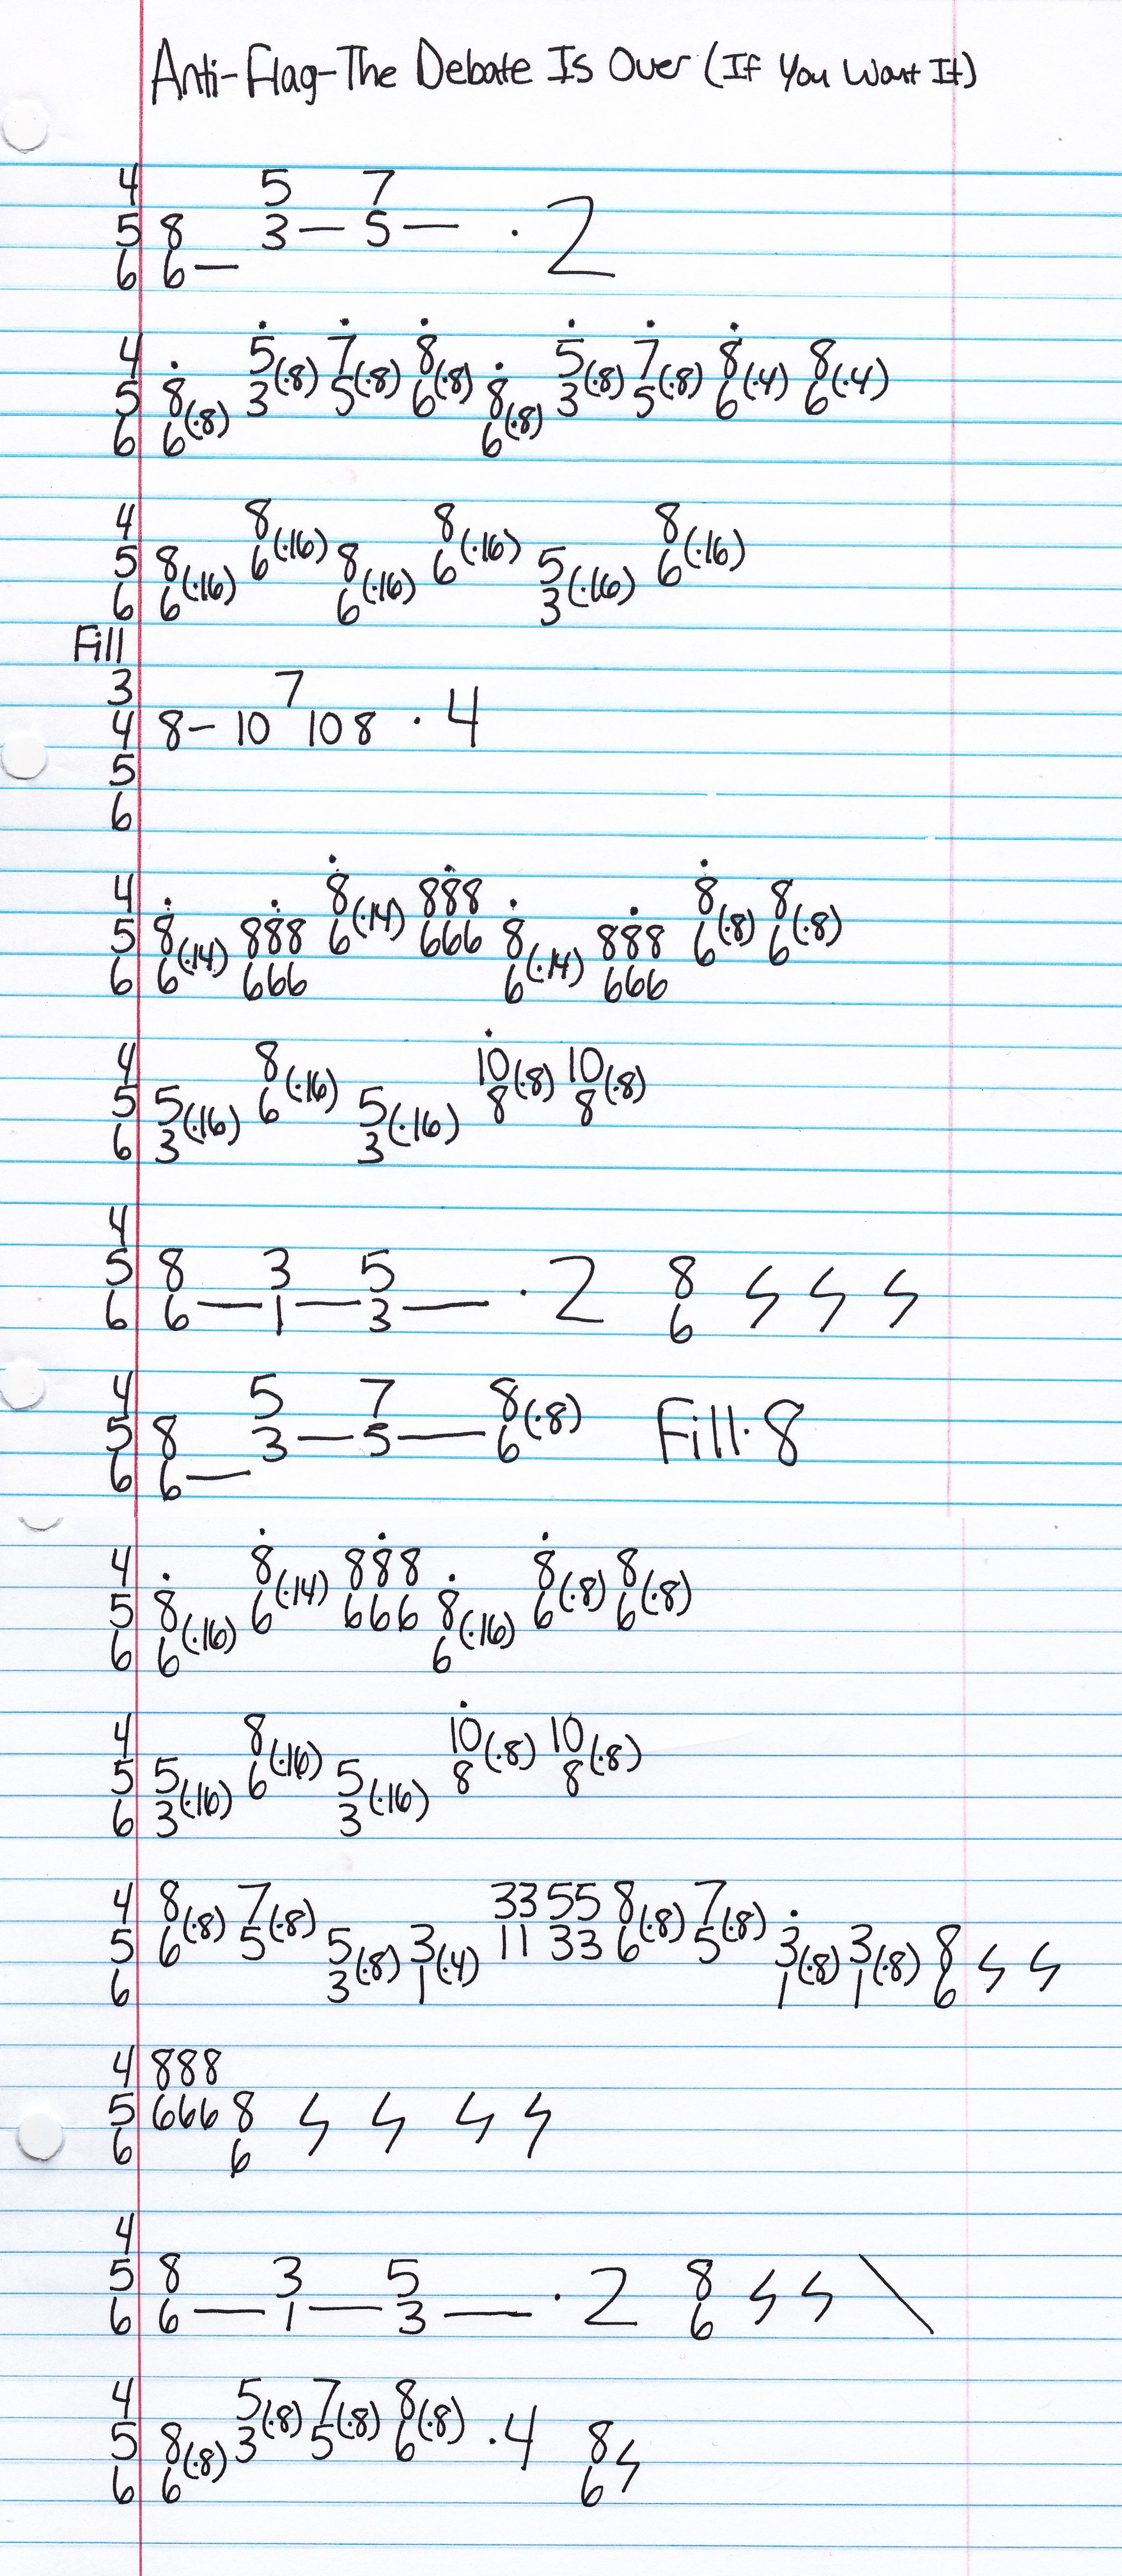 Anti-Flag-The Debate Is Over (If You Want It)
4 5 7
5 8 3 — 5 — · 2
6 6 —
4 5(·8) 7(·8) 8(·8) 5(·8) 7(·8) 8(·4) 8(·4)
5 8(·8) 3 5 6 8(·8) 3 5 6 6
6 6 6
4 8(·16) 8(·16) 8(·16)
5 8(·16) 6 8(·16) 6 5(·16) 6
6 6 6 3
Fill
3 7
4 8 – 10 10 8 · 4
5
6
4 8(·14) 888 8(·8) 8(·8)
5 8(·14) 888 6 666 8(·14) 888 6 6
6 6 666 6 666
4 8(·16) 10(·8) 10(·8)
5 5(·16) 6 5(·16) 8 8
6 3 3
4
5 8 3 5 · 2 8
6 6 — 1 — 3 — 6
4 5 7 8(·8)
5 8 3 — 5 — 6 Fill · 8
6 6 —
4 8(·14) 888 8(·8) 8(·8)
5 8(·16) 6 666 8(·16) 6 6
6 6 6
4 8(·16) 10(·8) 10(·8)
5 5(·16) 6 5(·16) 8 8
6 3 3
4 8(·8) 7(·8) 33 55 8(·8) 7(·8)
5 6 5 5(·8) 3(·4) 11 33 6 5 3(·8) 3(·8) 8
6 3 1 1 1 6
4 888
5 666 8
6 6
4
5 8 3 5 · 2 8
6 6 — 1 — 3 — 6
4 5(·8) 7(·8) 8(·8)
5 8(·8) 3 5 6 · 4 8
6 6 6